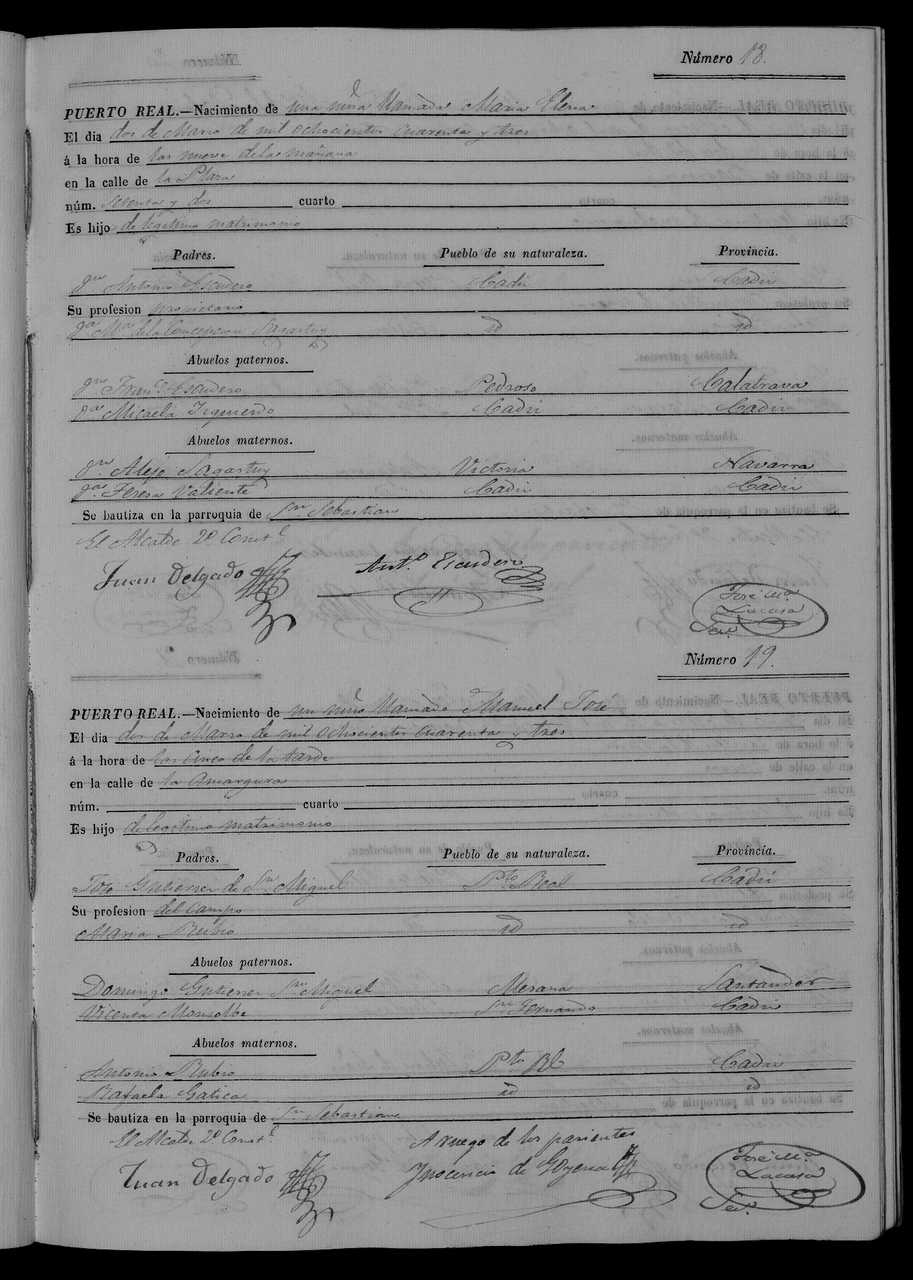 Número 18.
PUERTO REAL.—Nacimiento de una niña llamada Maria Elena
El dia dos de Marzo de mil ochocientos cuarenta y tres
á la hora de las nueve de la mañana
en la calle de la Plaza
núm. setenta y dos cuarto
Es hijo de legitimo matrimonio
Padres. Pueblo de su naturaleza. Provincia.
Dn Antonio Escudero Cadiz Cadiz
Su profesion propietario
Da Ma de la Concepcion Sagastuy id id
Abuelos paternos.
Dn Franco Escudero Pedroso Calatrava
Da Micaela Izquierdo Cadiz Cadiz
Abuelos maternos.
Dn Alejo Sagastuy Victoria Navarra
Da Teresa Valiente Cadiz Cadiz
Se bautiza en la parroquia de Sn Sebastian
El Alcalde 2o Constl
Juan Delgado Anto Escudero José Ma Lacasa Seco
Número 19.
PUERTO REAL.—Nacimiento de un niño llamado Manuel José
El dia dos de Marzo de mil ochocientos cuarenta y tres
á la hora de las cinco de la tarde
en la calle de la Amargura
núm. cuarto
Es hijo de legitimo matrimonio
Padres. Pueblo de su naturaleza. Provincia.
José Gutierrez de Sn Miguel Pto Real Cadiz
Su profesion del campo
Maria Rubio id id
Abuelos paternos.
Domingo Gutierrez Sn Miguel Santander
Vicenta Monsolbe Sn Fernando Cadiz
Abuelos maternos.
Antonio Rubio Pto Rl Cadiz
Rafaela Gatica id id
Se bautiza en la parroquia de Sn Sebastian
El Alcalde 2o Constl A ruego de los parientes
Juan Delgado Inocencio de Goyena José Ma Lacasa Seco